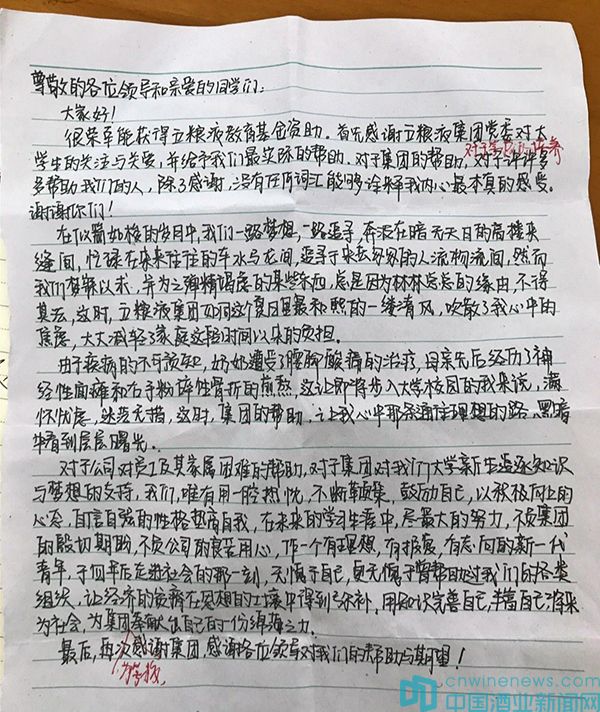 尊敬的各位领导和亲爱的同学们：
大家好！
很荣幸能获得五粮液教育基金资助。首先感谢五粮液集团党委对大
学生的关注与关爱，并给予我们最实际的帮助。对于集团的帮助，对于许许多
多帮助我们的人，除了感谢，没有任何词汇能够诠释我内心最本真的感受。
谢谢你们！
在似蜀如梭的岁月中，我们一路梦想，一路追寻，奔波在暗无天日的高楼夹
缝间，忙碌在来来往往的车水马龙间，追寻于来去匆匆的人流物流间，然而
我们梦寐以求，并为之殚精竭虑的某些东西，总是因为林林总总的缘由，不得
其志，这时，五粮液集团如同这个夏日里最和煦的一缕清风，吹散了我心中的
焦虑，大大减轻了家庭这段时间以来的负担。
由于疾病的不可预知，奶奶遭受了腰部酸痛的治疗，母亲先后经历了神
经性面瘫和右手粉碎性骨折的煎熬，这让即将步入大学校园的我来说，满
怀忧虑，迷茫无措，这时，集团的帮助，让我心中那条通往理想的路，黑暗
中看到层层曙光。
对于公司对员工及其家属困难的帮助，对于集团对我们大学新生追逐知识
与梦想的支持，我们，唯有用一腔热忱，不断凝集，鼓励自己，以积极向上的
心态，自信自强的性格垫高自我，在未来的学习生涯中，尽最大的努力，不负集团
的殷切期盼，不负公司的良苦用心，作一个有理想，有抱负，有志向的新一代
青年，于四年后走进社会的那一刻，无愧于自己，更无愧于曾帮助过我们的各类
组织，让经济的贫瘠在思想的土壤中得到弥补，用知识完善自己，丰富自己，将来
为社会，为集团奉献出自己的一份绵薄之力。
最后，再次感谢集团，感谢各位领导对我们的帮助与期望！
cnwinenews.com
中国酒业新闻网